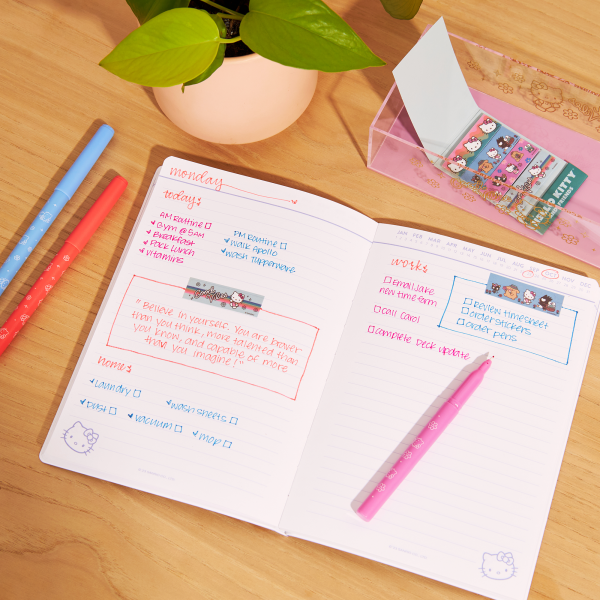 monday
today:
AM Routine
Gym @ 5AM
Breakfast
Pack Lunch
Vitamins
PM Routine
Walk Apollo
Wash Tupperware
"Believe in yourself. You are braver
than you think, more talented than
you know, and capable of more
than you imagine!"
home:
Laundry
Wash Sheets
Dust
Vacuum
Mop
JAN FEB MAR APR MAY JUN JUL AUG SEP OCT NOV DEC
work:
Email Jake
new time form
Call Carol
Complete Deck Update
Review timesheet
order stickers
order pens
HELLO KITTY